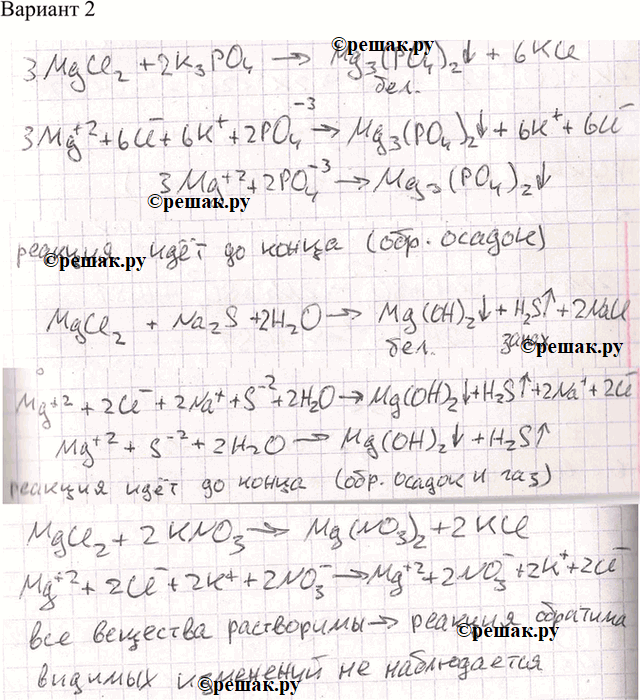 Вариант 2
©решак.ру
3MgCl₂ + 2K₃PO₄ → Mg₃(PO₄)₂↓ + 6KCl
бел.
3Mg⁺² + 6Cl⁻ + 6K⁺ + 2PO₄⁻³ → Mg₃(PO₄)₂↓ + 6K⁺ + 6Cl⁻
3Mg⁺² + 2PO₄⁻³ → Mg₃(PO₄)₂↓
©решак.ру
реакция идёт до конца (обр. осадок)
©решак.ру
MgCl₂ + Na₂S + 2H₂O → Mg(OH)₂↓ + H₂S↑ + 2NaCl
бел. запах
©решак.ру
Mg⁺² + 2Cl⁻ + 2Na⁺ + S⁻² + 2H₂O → Mg(OH)₂↓ + H₂S↑ + 2Na⁺ + 2Cl⁻
Mg⁺² + S⁻² + 2H₂O → Mg(OH)₂↓ + H₂S↑
реакция идёт до конца (обр. осадок и газ)
MgCl₂ + 2KNO₃ → Mg(NO₃)₂ + 2KCl
Mg⁺² + 2Cl⁻ + 2K⁺ + 2NO₃⁻ → Mg⁺² + 2NO₃⁻ + 2K⁺ + 2Cl⁻
все вещества растворимы → реакция обратима
©решак.ру
видимых изменений не наблюдается
©решак.ру